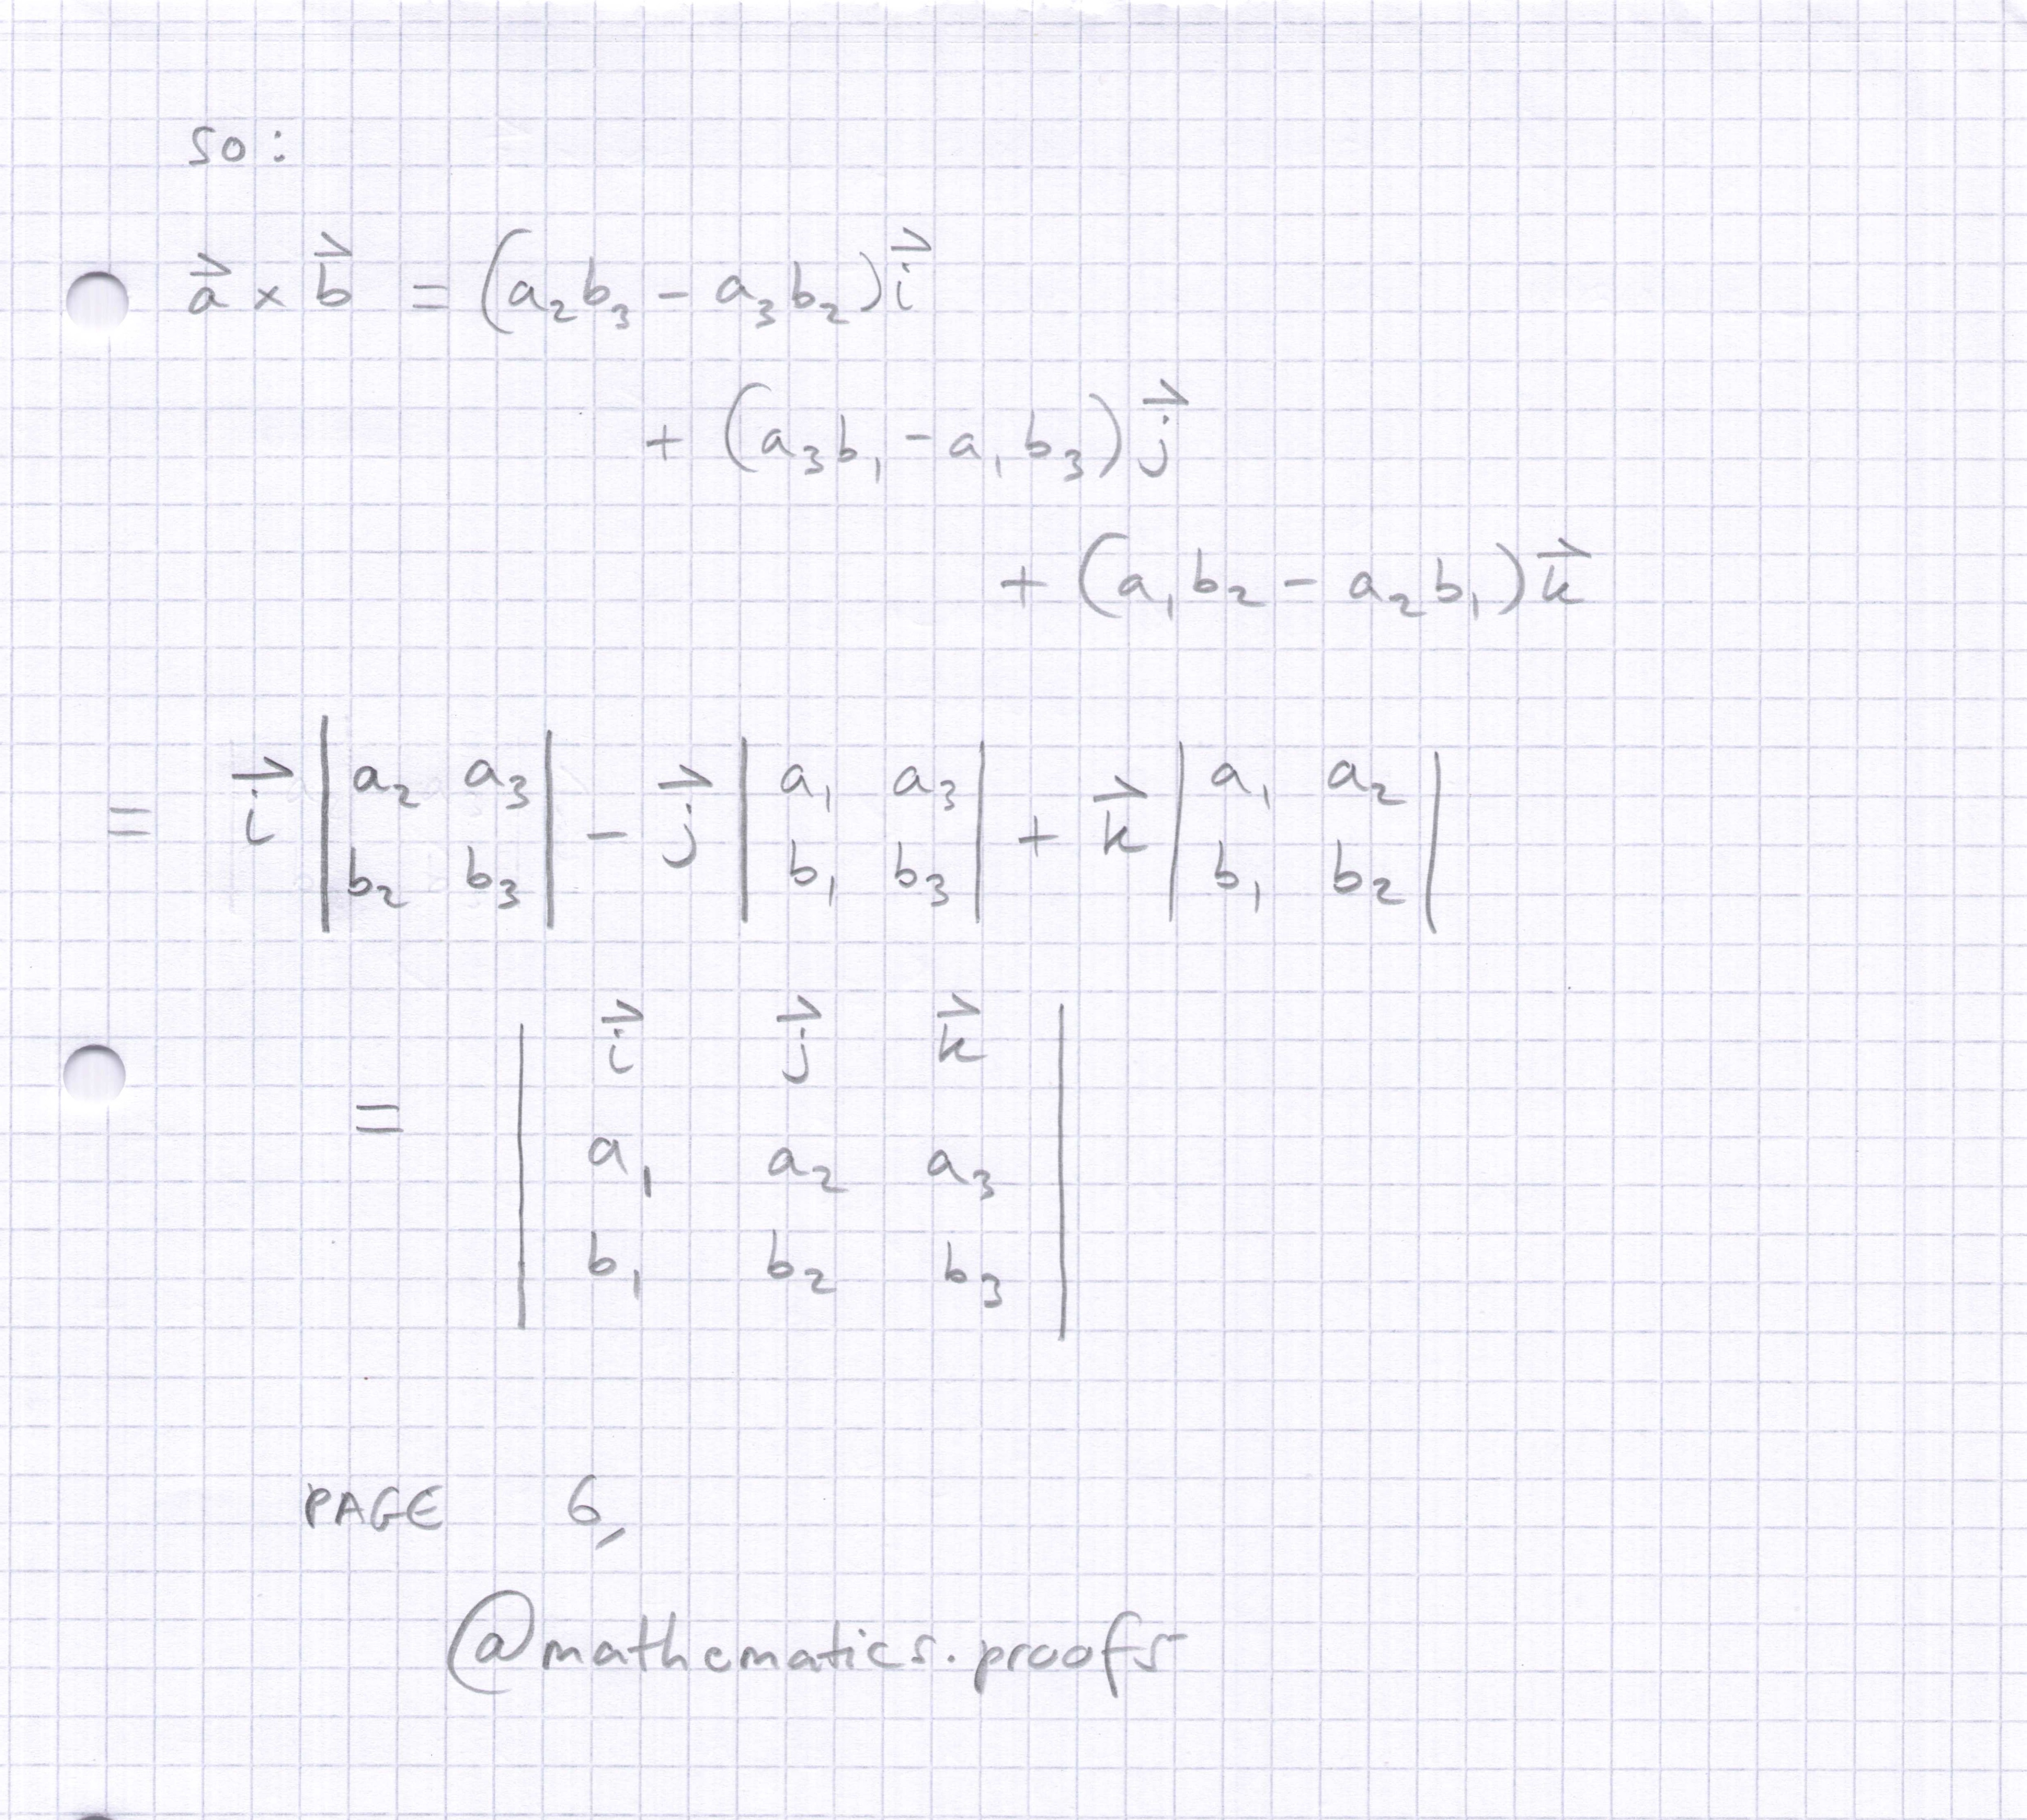 so:
$\vec{a} \times \vec{b} = (a_2 b_3 - a_3 b_2)\vec{i}$
$+ (a_3 b_1 - a_1 b_3)\vec{j}$
$+ (a_1 b_2 - a_2 b_1)\vec{k}$
$= \vec{i} \begin{vmatrix} a_2 & a_3 \\ b_2 & b_3 \end{vmatrix} - \vec{j} \begin{vmatrix} a_1 & a_3 \\ b_1 & b_3 \end{vmatrix} + \vec{k} \begin{vmatrix} a_1 & a_2 \\ b_1 & b_2 \end{vmatrix}$
$= \begin{vmatrix} \vec{i} & \vec{j} & \vec{k} \\ a_1 & a_2 & a_3 \\ b_1 & b_2 & b_3 \end{vmatrix}$
PAGE 6,
@mathematics.proofs